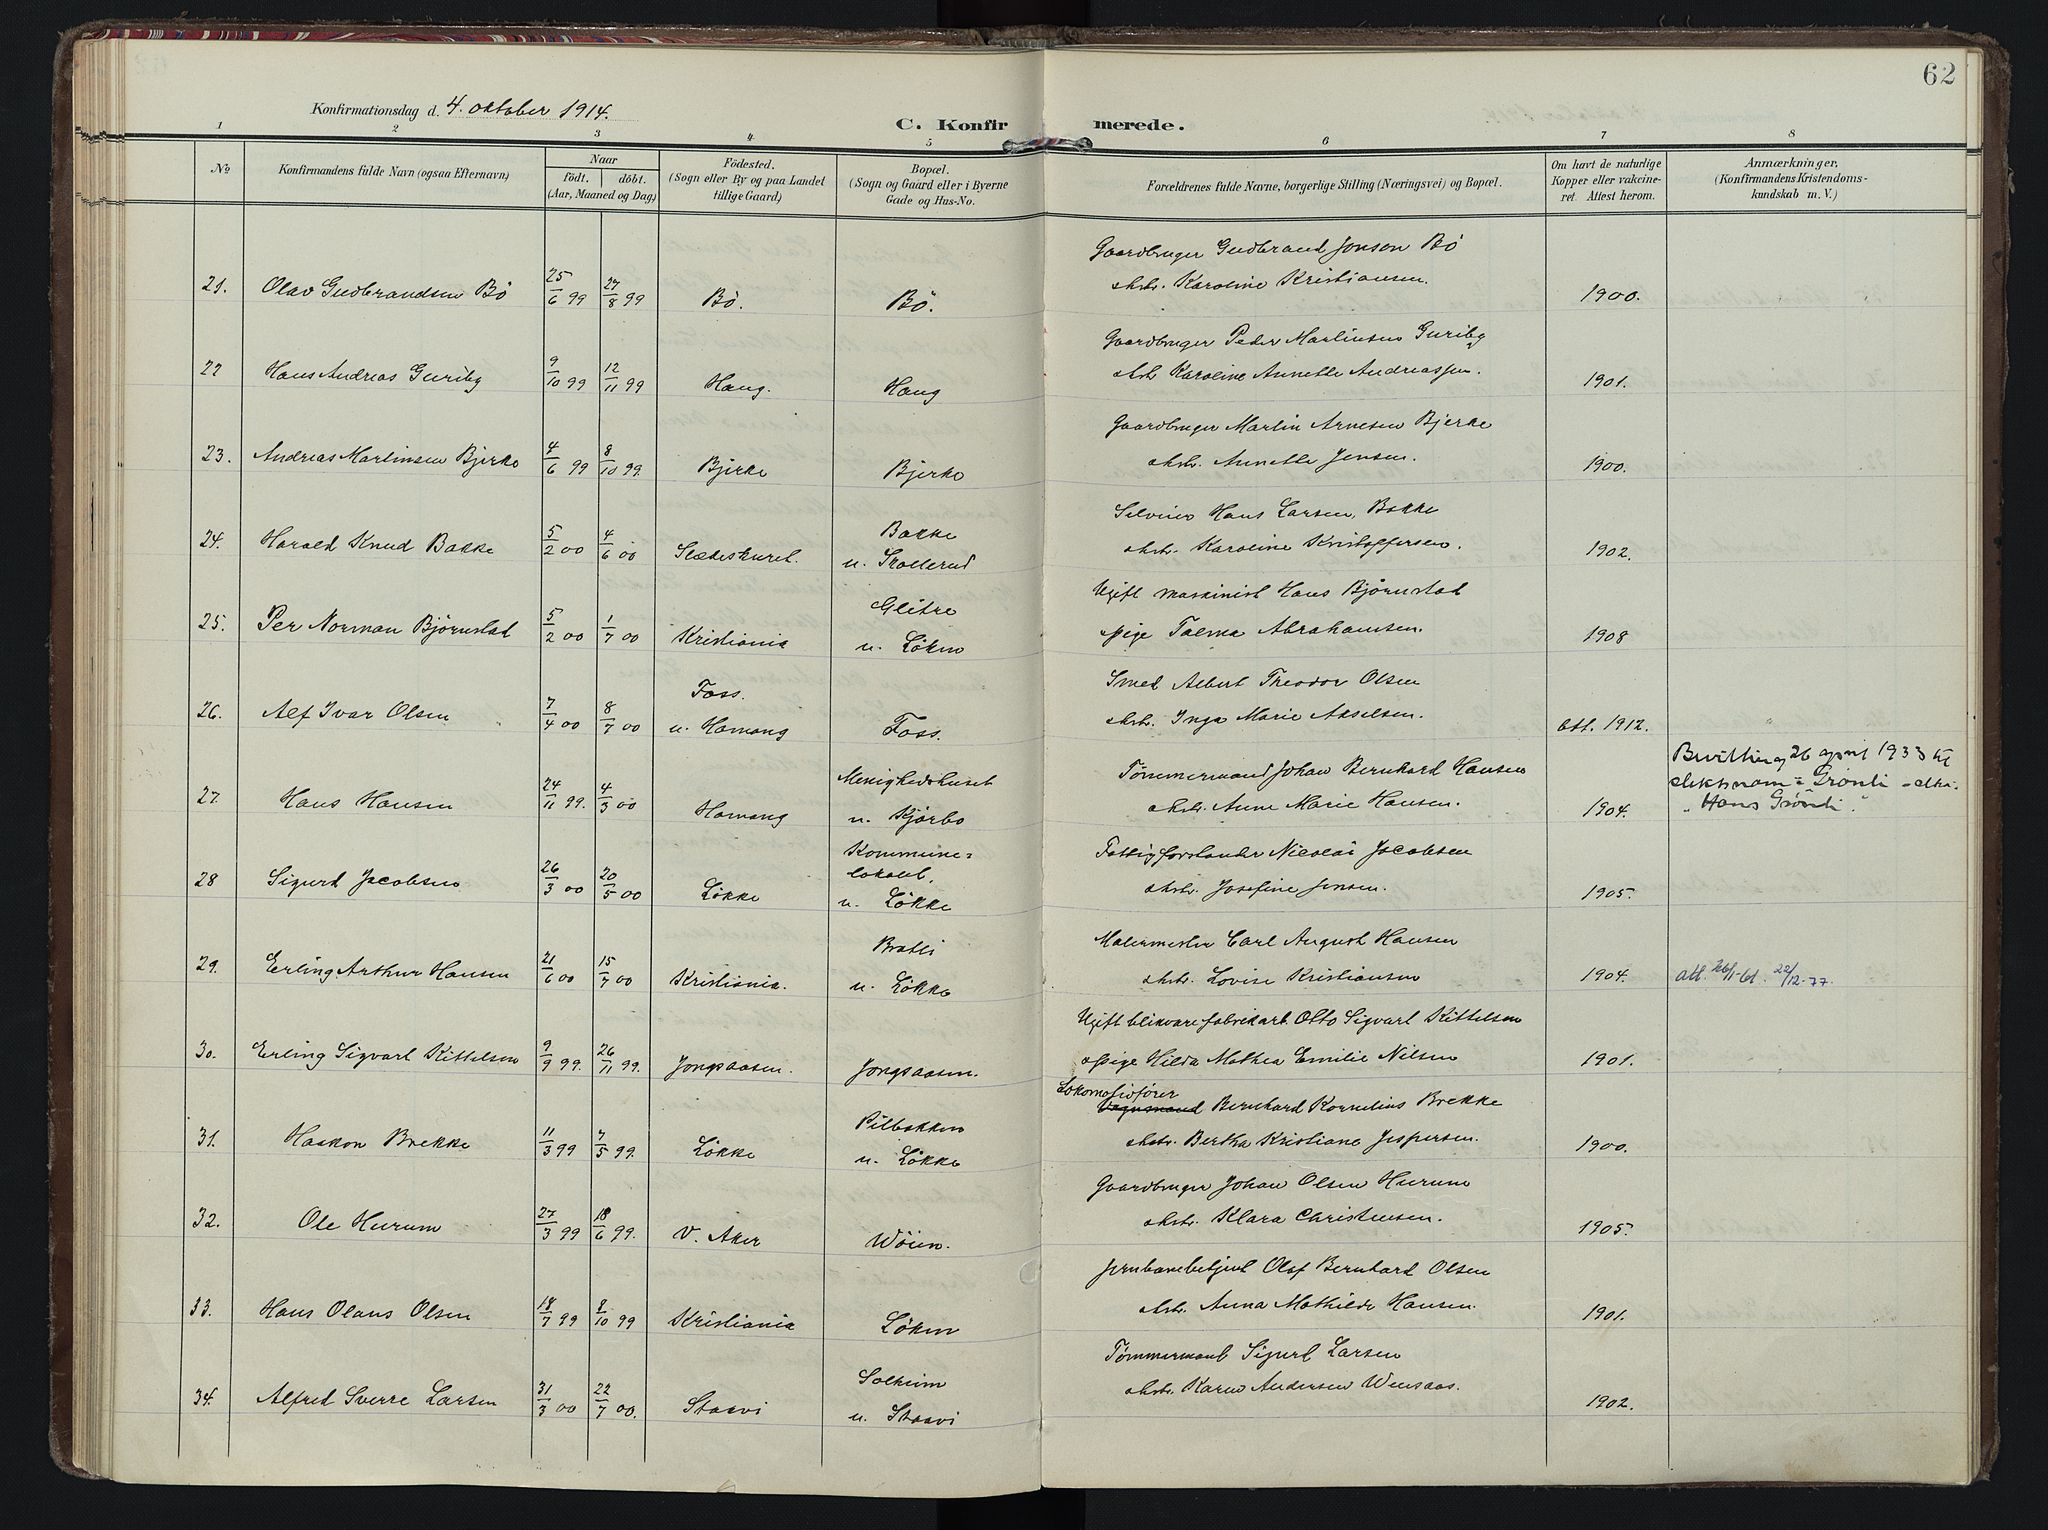 62
Konfirmationsdag d. 4. oktober 1914.
C. Konfirmerede.
1 2 3 4 5 6 7 8
No
Konfirmandens fulde Navn (ogsaa Efternavn)
Naar
födt. döbt.
(Aar, Maaned og Dag)
Födested.
(Sogn eller By og paa Landet
tillige Gaard)
Bopæl.
(Sogn og Gaard eller i Byerne
Gade og Hus-No.
Forældrenes fulde Navne, borgerlige Stilling (Næringsvei) og Bopæl.
Om havt de naturlige
Kopper eller vakcine-
ret. Attest herom.
Anmærkninger,
(Konfirmandens Kristendoms-
kundskab m. V.)
Gaardbruger Gudbrand Jonson Bö
21. Olav Gudbrandsen Bö 25/6 99 27/8 99 Bö. Bö. ohstr. Karoline Kristiansen. 1900.
Gaardbruger Peder Martinsen Guriby
22 Hans Andreas Guriby 9/10 99 12/11 99 Haug. Haug ohstr Karoline Annette Andreassen. 1901.
Gaardbruger Martin Arnesen Bjerke
23. Andreas Martinsen Bjerke 4/6 99 8/10 99. Bjerke Bjerke ohstr. Annette Jensen. 1900.
Bakke Selveier Hans Larsen, Bakke
24. Harald Knud Bakke 5/2 00 4/6 00 Slædeskuret. u. Skollerud ohstr. Karoline Kristoffersen. 1902.
Glitre Ugift maskinist Hans Bjørnstad
25. Per Norman Björnstad 5/2 00 1/7 00 Kristiania u. Løken pige Talma Abrahamsen. 1908
Foss. Smed Albert Theodor Olsen
26. Alf Ivar Olsen 7/4 00 8/7 00 u. Hamang Foss. ohstr. Inga Marie Axelsen. att. 1912.
Menighedshuset Tømmermand Johan Bernhard Hansen Bevilling 26 april 1933 til
slektsnavn = Grönli - altså:
27. Hans Hansen 24/11 99. 4/3 00 Hamang u. Kjørbo ohstr. Anne Marie Hansen. 1904. "Hans Grönli".
Kommune-
lokalet, Fattigforstander Nicolai Jacobsen
28 Sigurd Jacobsen 26/3 00 20/5 00 Løkke u. Løkke ohstr. Josefine Jensen. 1905.
Bratli Malermester Carl August Hansen
29. Erling Arthur Hansen 21/6 00 15/7 00 Kristiania. u. Løkke ohstr. Lovise Kristiansen 1904. att. 26/1-61. 22/12-77.
Ugift blikvarefabrikarb. Otto Sigvart Kittelsen
30. Erling Sigvart Kittelsen 9/9 99. 26/11 99. Jongsaasen. Jongsaasen. opige Hilda Mathea Emilie Nilsen 1901.
Lokomotivfører
Pilbakken Vognmand Bernhard Kornelius Brekke
31. Haakon Brekke 11/3 99 7/5 99. Løkke u. Løkke ohstr. Bertha Kristiane Jespersen. 1900.
Gaardbruger Johan Olsen Hurum
32. Ole Hurum 27/3 99 18/6 99. V. Aker Wöien. ohstr. Klara Christensen. 1905.
Jernbanebetjent Olaf Bernhard Olsen
33. Hans Olaus Olsen 18/7 99 8/10 99 Kristiania Løken ohstr. Anna Mathilde Hansen. 1901.
Solheim Tømmermand Sigurd Larsen
34. Alfred Sverre Larsen 31/3 00 22/7 00. Staavi u. Staavi ohstr. Karen Andersen Wensaas. 1902.